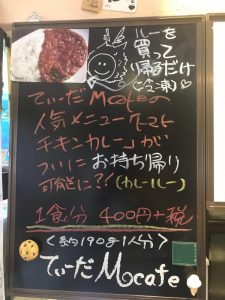 ルーを
買って
帰るだけ
(冷凍)♡
てぃーだMcafeの
人気メニュー「トマト
チキンカレー」が
ついにお持ち帰り
可能に?!(カレールー)
1食/分 400円+税
<約190g1人分>
てぃーだMcafe